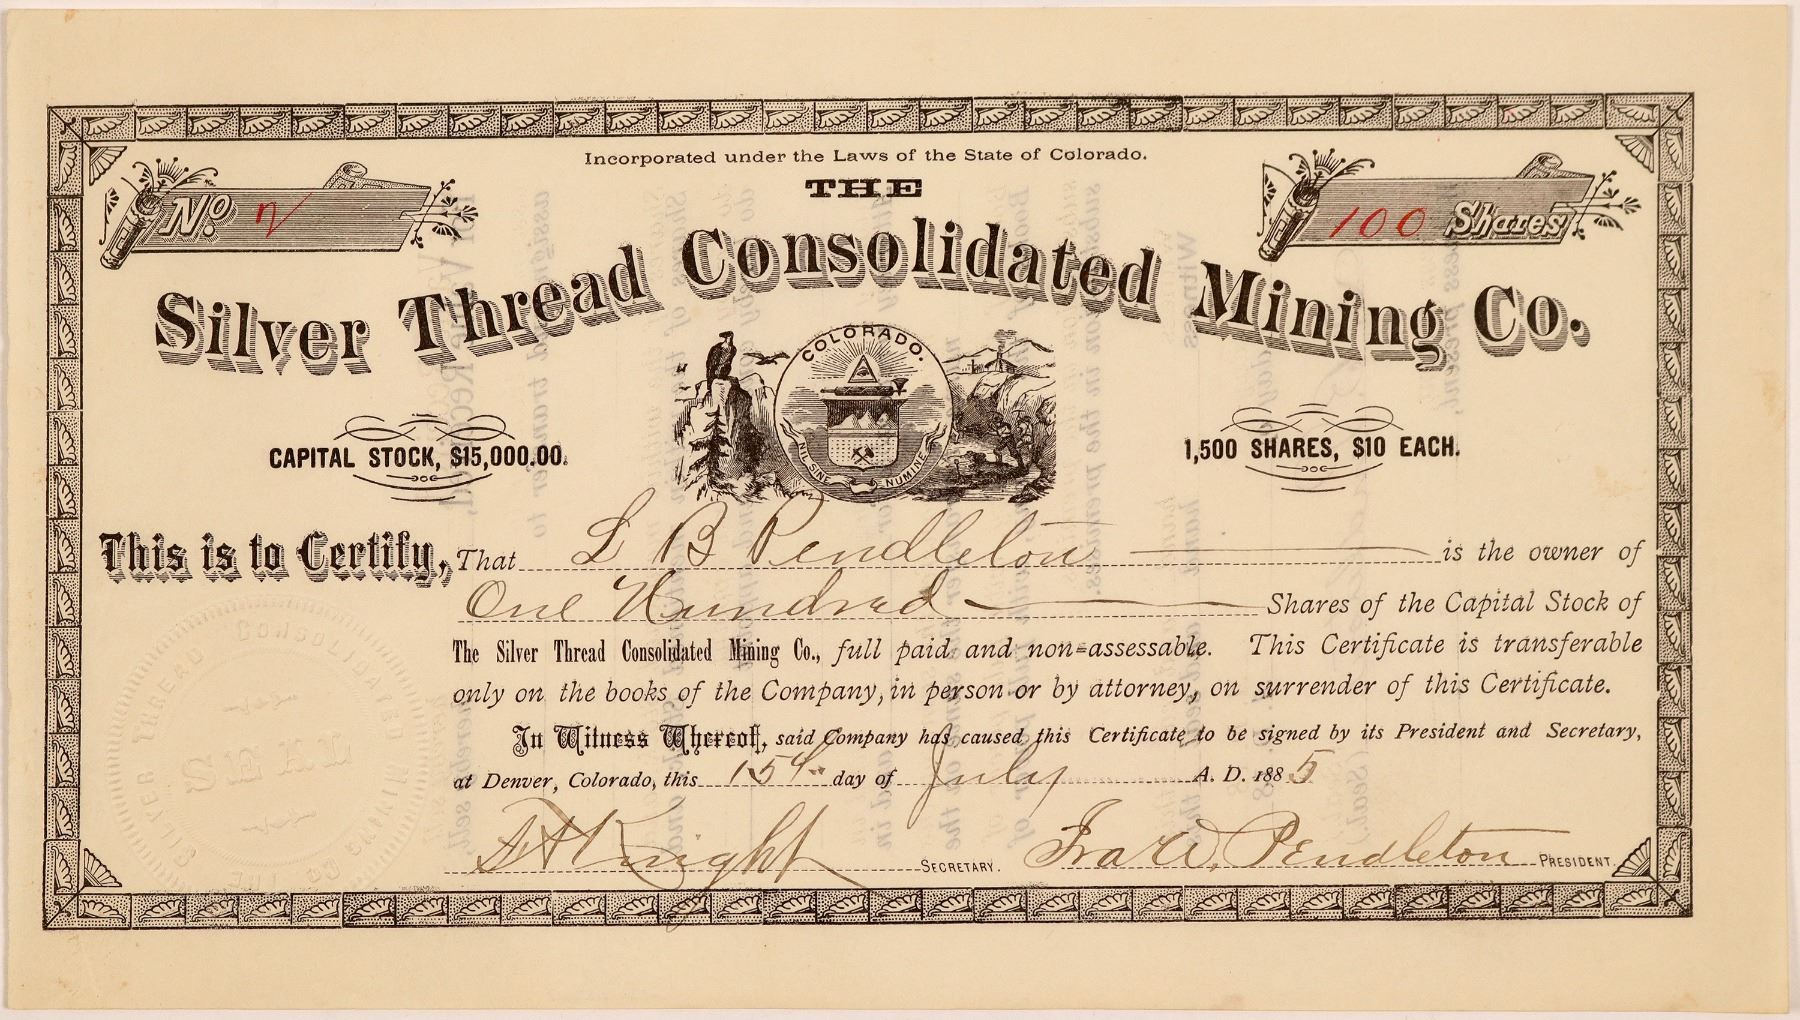 Incorporated under the Laws of the State of Colorado.
No. 2
100 Shares
THE
Silver Thread Consolidated Mining Co.
COLORADO.
NIL SINE NUMINE
CAPITAL STOCK, $15,000.00.
1,500 SHARES, $10 EACH.
This is to Certify, That L B Pendleton is the owner of
One Hundred Shares of the Capital Stock of
The Silver Thread Consolidated Mining Co., full paid and non=assessable. This Certificate is transferable
only on the books of the Company, in person or by attorney, on surrender of this Certificate.
In Witness Whereof, said Company has caused this Certificate to be signed by its President and Secretary,
at Denver, Colorado, this 15th day of July A. D. 1885
Knight SECRETARY. Ira W. Pendleton PRESIDENT.
THE SILVER THREAD CONSOLIDATED MINING CO
SEAL